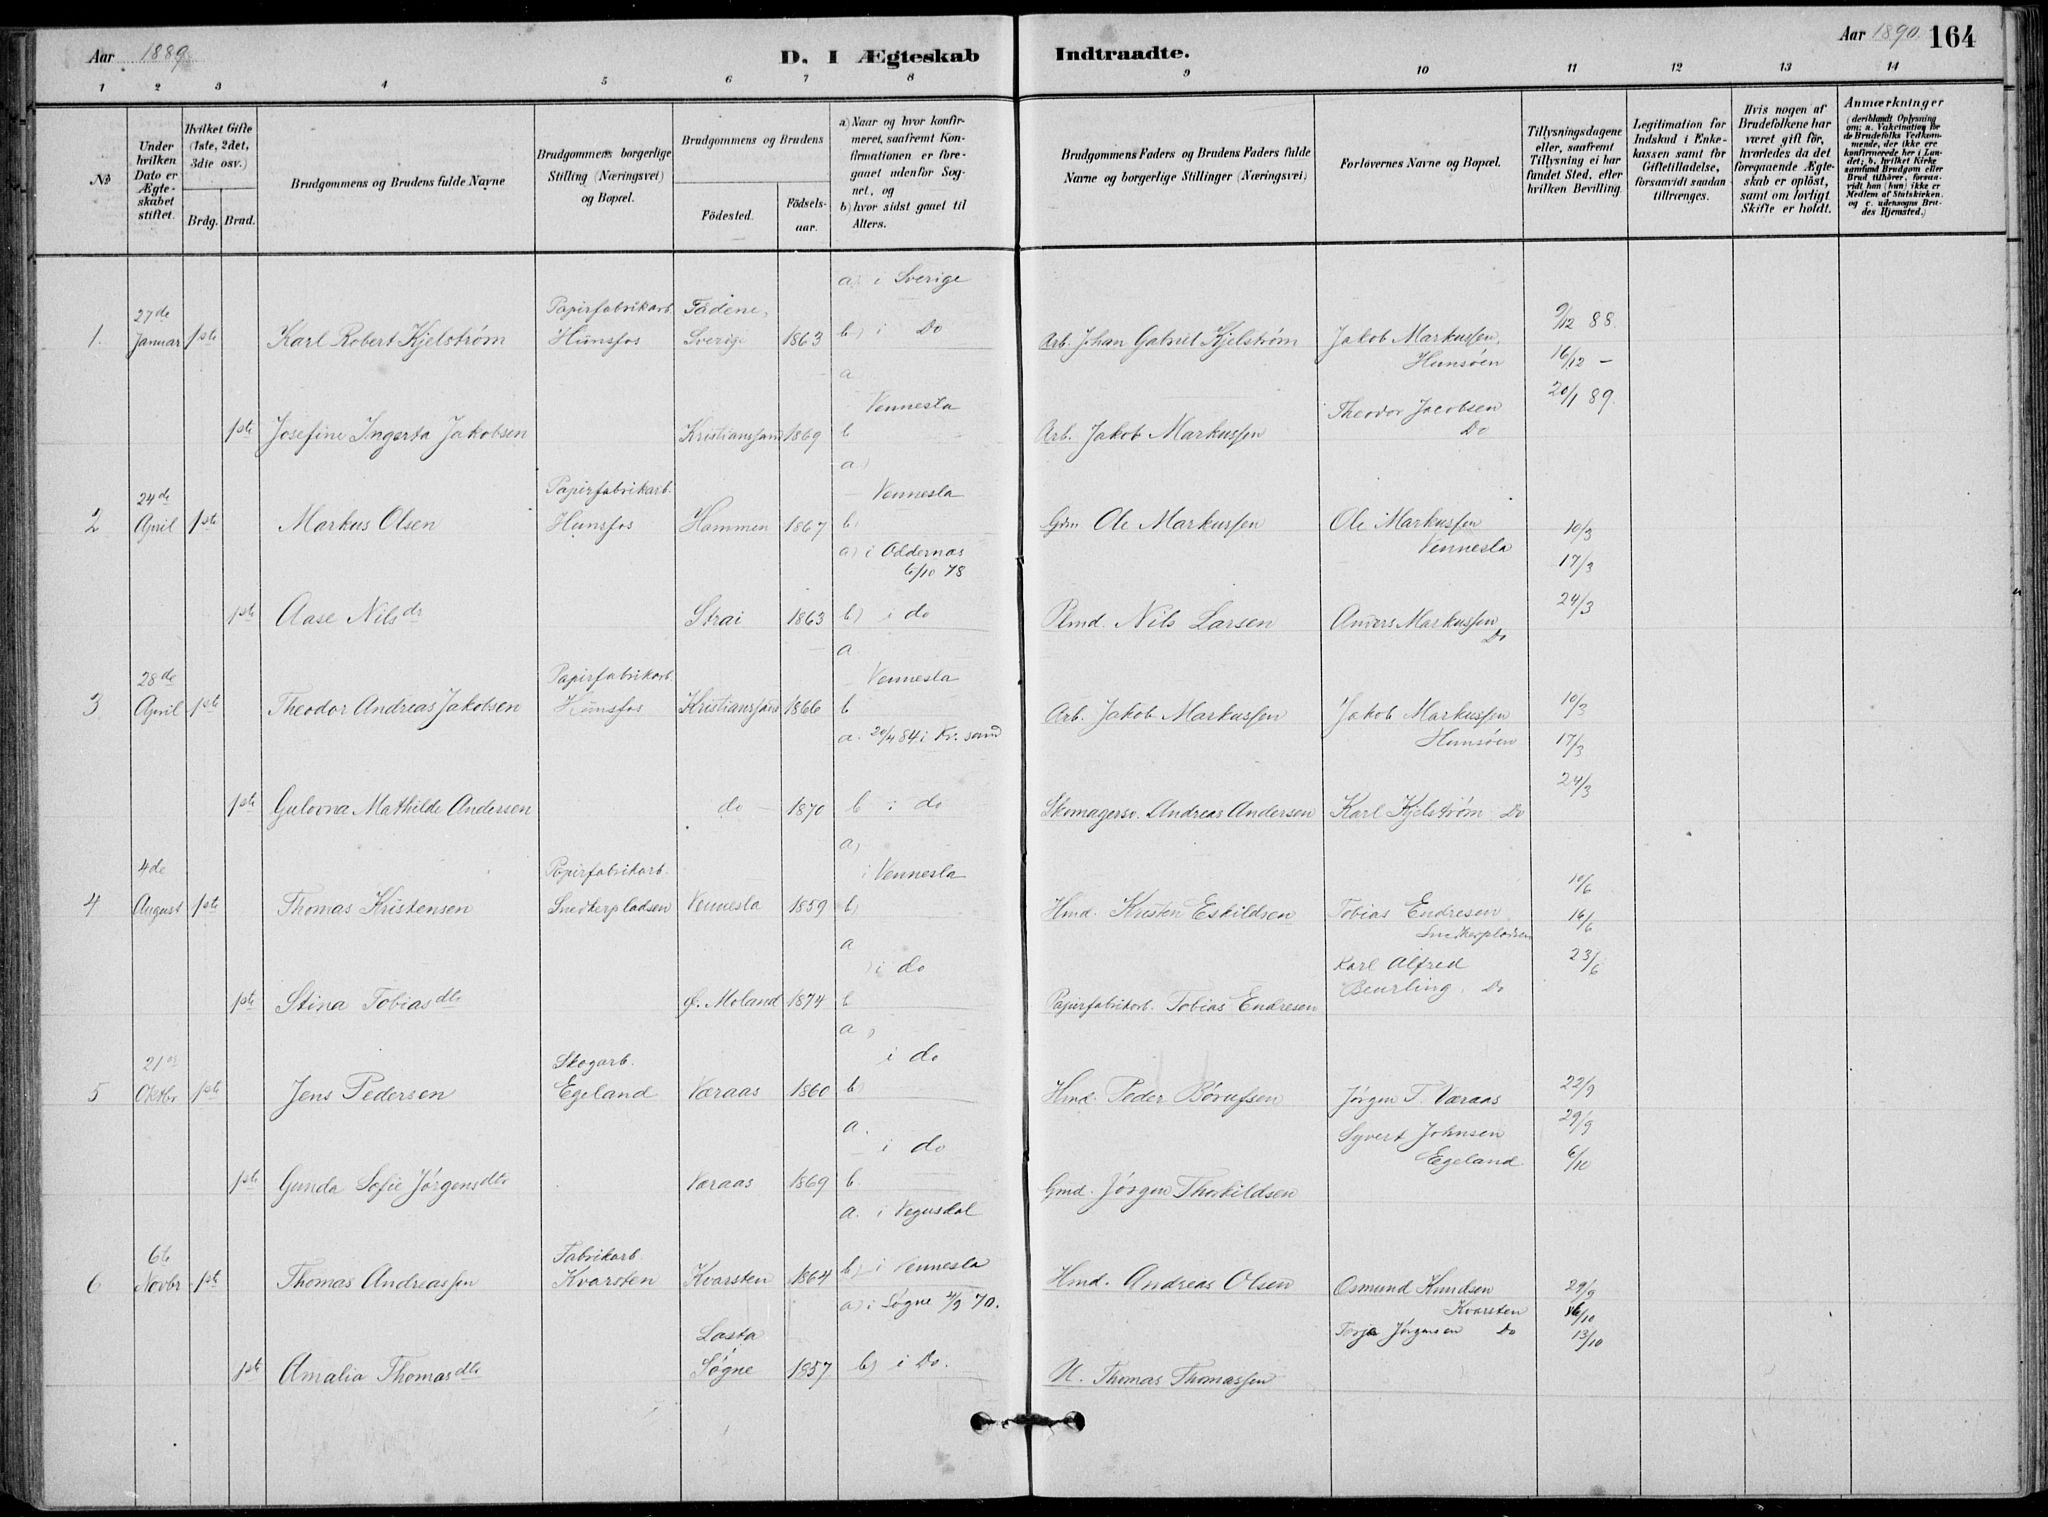 Aar 1889
D. I Ægteskab Indtraadte.
Aar 1890. 164
1 2 3 4 5 6 7 8 9 10 11 12 13 14
No
Under hvilken Dato er Ægteskabet stiftet.
Hvilket Gifte (1ste, 2det, 3die osv.)
Brdg. Brud.
Brudgommens og Brudens fulde Navne
Brudgommens borgerlige Stilling (Næringsvei) og Bopæl.
Brudgommens og Brudens
Födested. Födselsaar.
a) Naar og hvor konfirmeret, saafremt Konfirmationen er foregaaet udenfor Sognet, og
b) hvor sidst gaaet til Alters.
Brudgommens Faders og Brudens Faders fulde Navne og borgerlige Stillinger (Næringsvei)
Forlovernes Navne og Bopæl.
Tillysningsdagene eller, saafremt Tillysning ei har fundet Sted, efter hvilken Bevilling.
Legitimation for Indskud i Enkekassen samt for Giftetilladelse, forsaavidt saadan tiltrænges.
Hvis nogen af Brudefolkene har været gift för, hvorledes da det foregaaende Ægteskab er oplöst, samt om lovligt Skifte er holdt.
Anmærkninger (deriblandt Oplysning om: a. Vakcination for de Brudefolks Vedkommende, der ikke ere konfirmerede her i Landet; b. hvilket Kirkesamfund Brudgom eller Brud tilhörer, forsaavidt han (hun) ikke er Medlem af Statskirken og c. udensogns Brudes Hjemsted.)
a) i Sverige
1. 27de Januar 1ste Karl Robert Kjelstrøm Papirfabrikarb. Hunsfos Fådene, Sverige 1863 b) i Do Arb. Johan Gabriel Kjelstrøm Jakob Markussen, Hunsøen 9/12 88. 16/12 –
a Vennesla
1ste Josefine Ingerta Jakobsen Kristianssand 1869 b Arb. Jakob Markussen Theodor Jacobsen Do 20/1 89.
a) Vennesla
2 24de April 1ste Markus Olsen Papirfabrikarb. Hunsfos Hommen 1867 b Gdm Ole Markussen Ole Markussen Vennesla 10/3 17/3
a) i Oddernæs 6/10 78
1ste Aase Nilsdr Strai 1863 b) i do Plmd. Nils Larsen Anders Markussen Do 24/3
a Vennesla
3 28de April 1ste Theodor Andreas Jakobsen Papirfabrikarb. Hunsfos Kristianssand 1866 b Arb. Jakob Markussen Jakob Markussen Hunsøen 10/3 17/3
a. 20/4 84 i Kr.sand
1ste Gulovna Mathilde Andersen do 1870 b i do Skomagersv. Andreas Andersen Karl Kjelstrøm Do 24/3
a) i Vennesla
4 4de August 1ste Thomas Kristensen Papirfabrikarb. Snedkerpladsen Vennesla 1859 b) Hmd. Kristen Eskildsen Tobias Endresen Snedkerpladsen 10/6 16/6
a) i do
1ste Stina Tobiasdtr Ø. Moland 1874 b Papirfabrikarb. Tobias Endresen Karl Alfred Beurling. Do 23/6
a) i do
5 21de Oktbr 1ste Jens Pedersen Skogarb. Egeland Væraas 1860 b) Hmd. Peder Børufsen Jørgen T. Væraas 22/9 29/9
a. i do
1ste Gunda Sofie Jørgensdtr Væraas 1869 b. Gmd. Jørgen Thorkildsen Syvert Johnsen Egeland 6/10
a. i Vegusdal
6 6te Novbr 1ste Thomas Andreassen Fabrikarb. Kvarsten Kvarsten 1864 b) i Vennesla Hmd. Andreas Olsen Osmund Knudsen Kvarsten 29/9 6/10
a) i Søgne 2/9 70.
1ste Amalia Thomasdtr Lasta Søgne 1857 b) i Do. U. Thomas Thomassen Torje Jørgensen Do 13/10